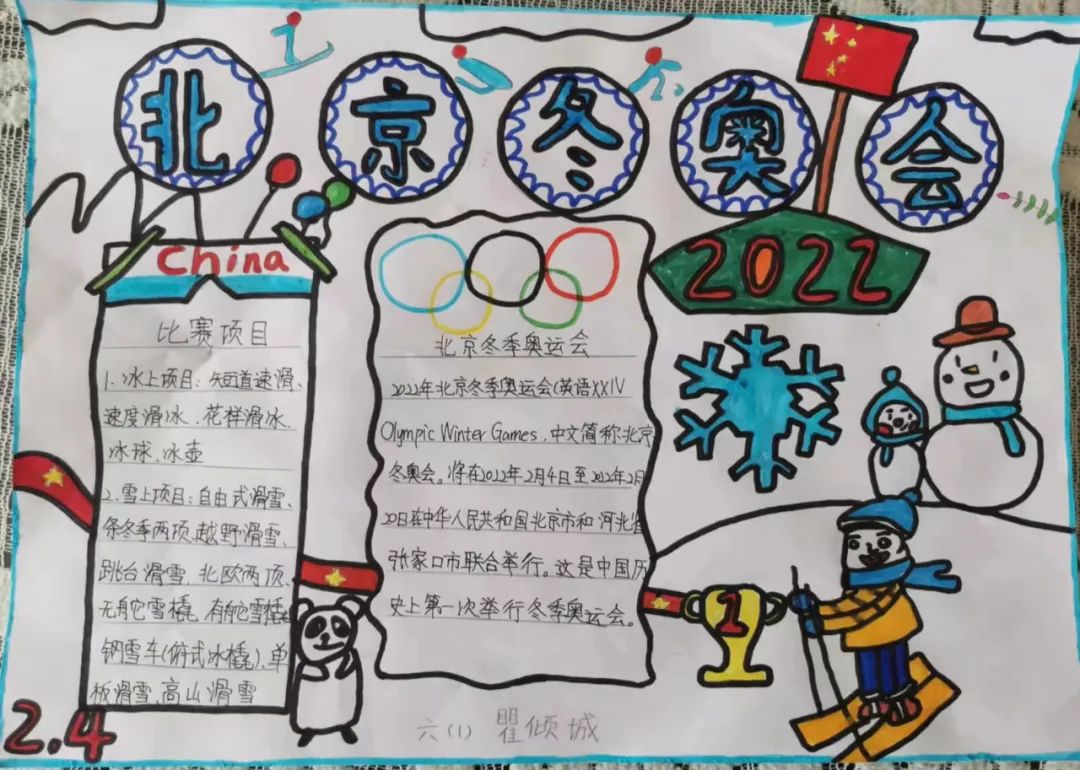 北京冬奥会
2022
China
比赛项目
1.冰上项目：短道速滑、
速度滑冰.花样滑冰、
冰球、冰壶
2.雪上项目：自由式滑雪、
冬季两项、越野滑雪、
跳台滑雪、北欧两项、
无舵雪橇、有舵雪橇
钢雪车(俯式冰橇)、单
板滑雪、高山滑雪
北京冬季奥运会
2022年北京冬季奥运会(英语XXIV
Olympic Winter Games、中文简称:北京
冬奥会。将在2022年2月4日至2022年2月
20日在中华人民共和国北京市和河北省
张家口市联合举行。这是中国历
史上第一次举行冬季奥运会。
1
2.4
六(1) 瞿倾城